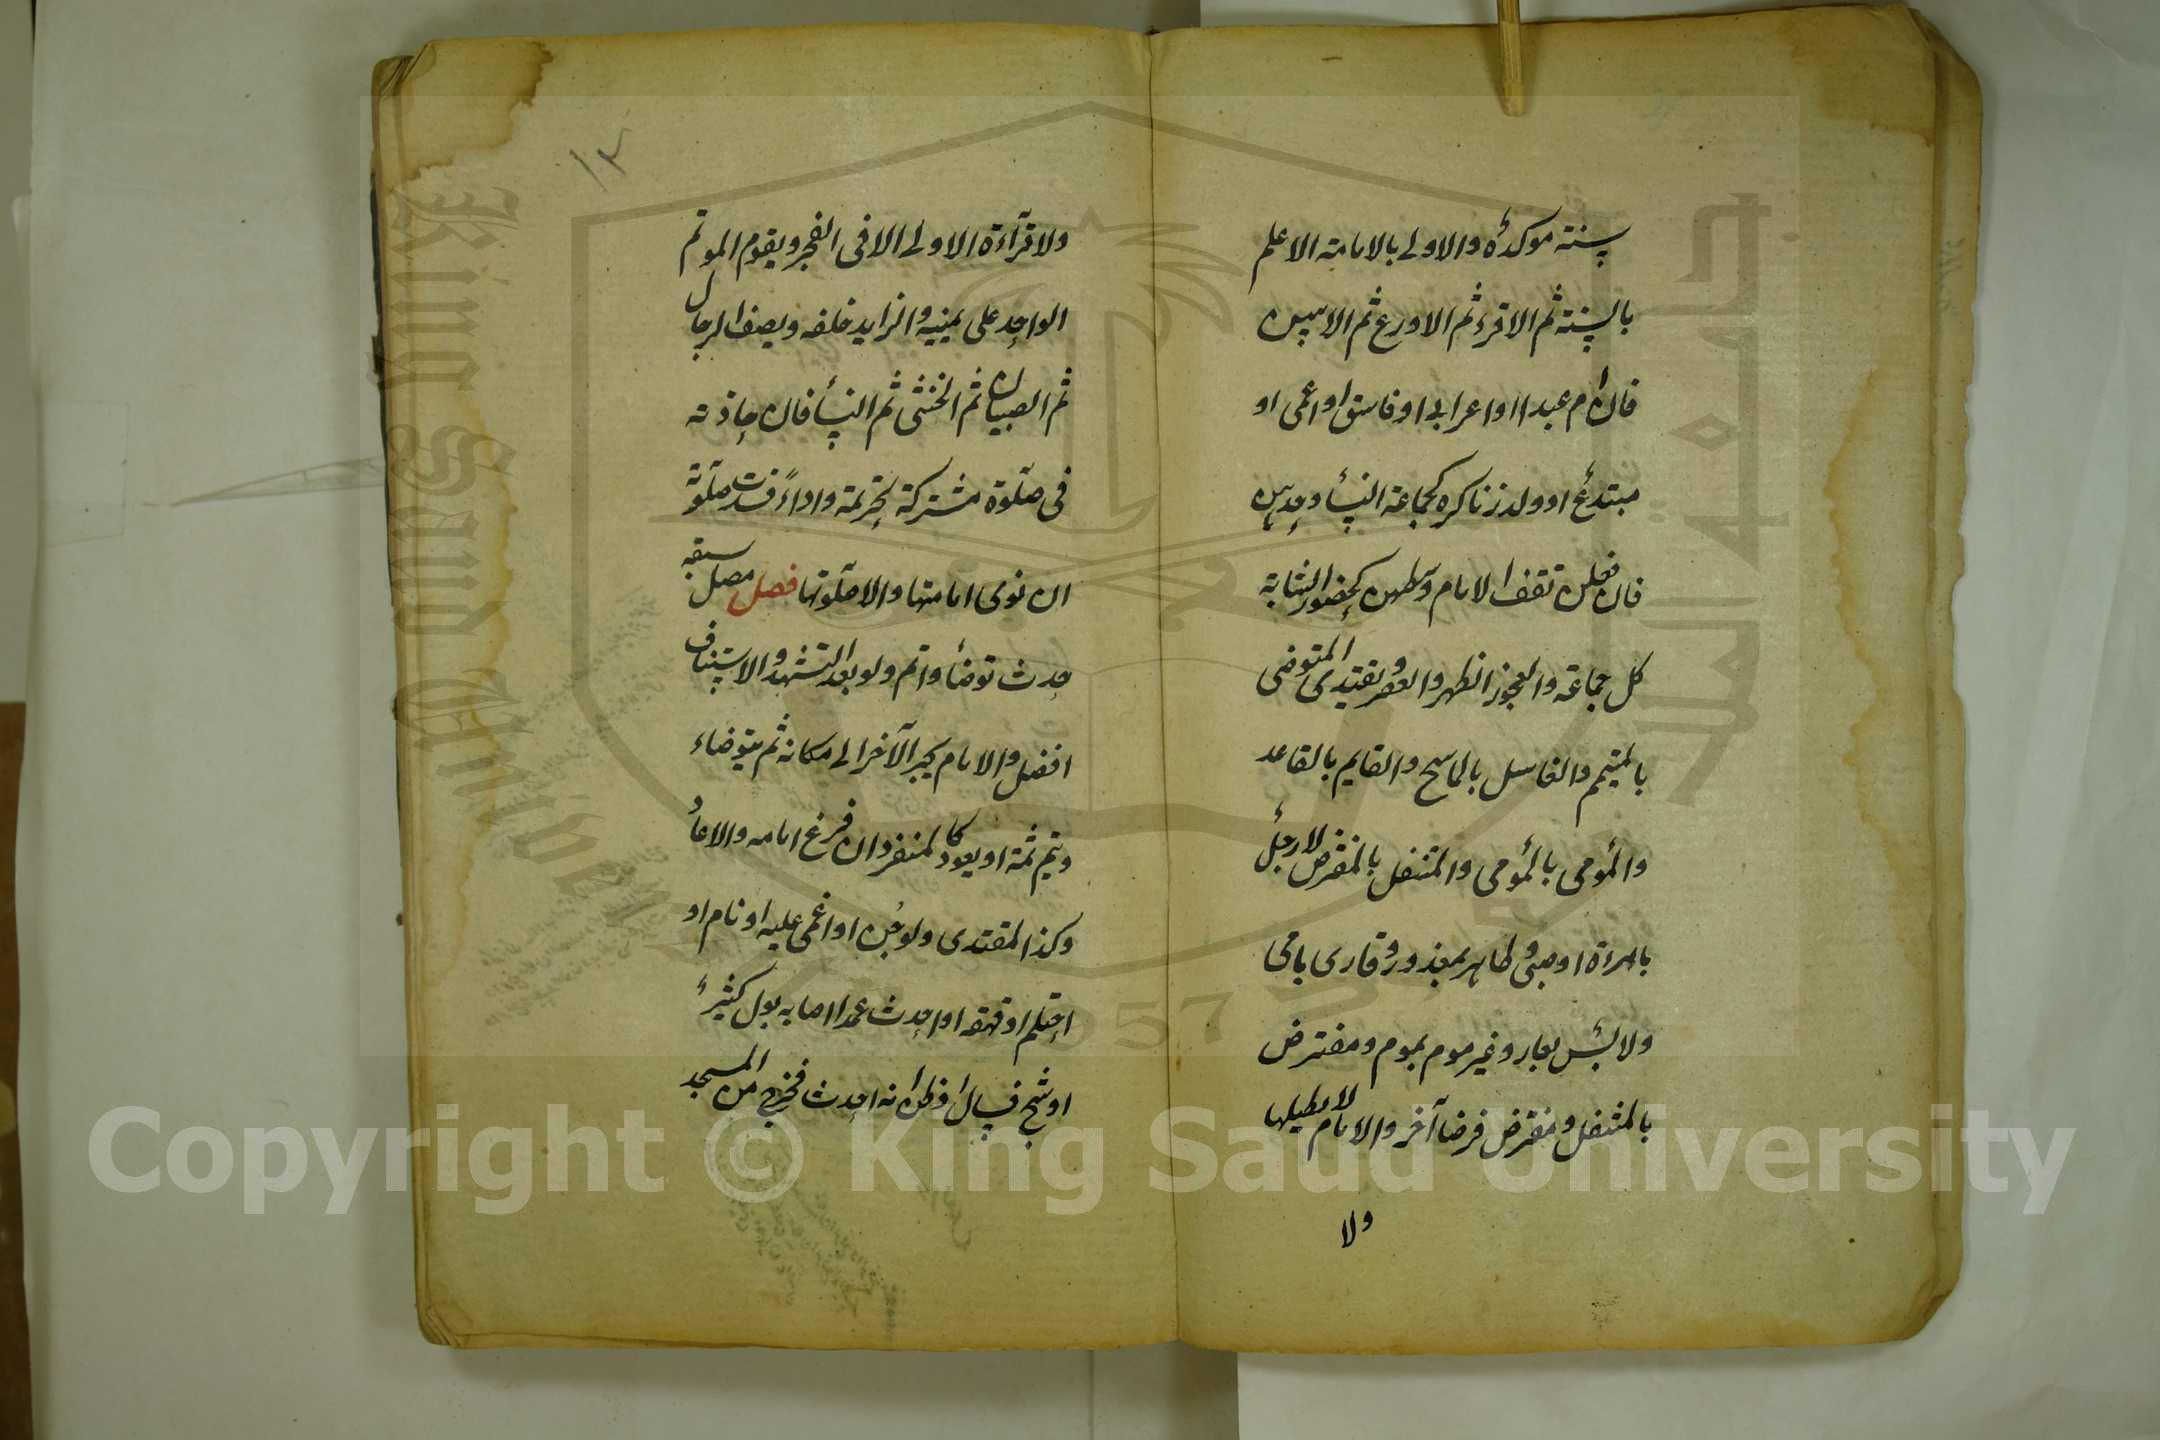 سنة موكدة والاولى بالامامة الاعلم
بالسنة ثم الاقرء ثم الاورع ثم الاسن
فان ام عبد او اعرابى او فاسق او اعمى او
مبتدع او ولد زنا كره كجماعة النساء وحدهن
فان فعلن تقف الامام وسطهن كحضور الشابة
كل جماعة والعجوز الظهر والعصر ويقتدى المتوضى
بالمتيمم والغاسل بالماسح والقايم بالقاعد
والمؤمى بالمؤمى والمتنفل بالمفترض لا رجل
بامرءة او صبى وطاهر بمعذور وقارى بامى
ولابس بعار وغير موم بموم ومفترض
بالمتنفل ومفترض فرضا آخر والامام لا يطيلها
ولا
١٢
ولا قرآءة الاولى الا فى الفجر ويقوم الموتم
الواحد على يمينه والزايد خلفه ويصف الرجال
ثم الصبيان ثم الخنثى ثم النساء فان حاذته
فى صلوة مشتركة تحريمة واداءً فسدت صلوته
ان نوى امامتها والا صلوتها فصل مصل سبقه
حدث توضأ واتم ولو بعد التشهد والاستيناف
افضل والامام يجر الآخر الى مكانه ثم يتوضاء
ويتم ثمة او يعود كالمنفرد ان فرغ امامه والا عاد
وكذا المقتدى ولو جن او اغمى عليه او نام او
احتلم او قهقه او احدث عمدا اصابه بول كثير
او شج فسال او ظن انه احدث فخرج من المسجد
King Saud University
1957
Copyright © King Saud University